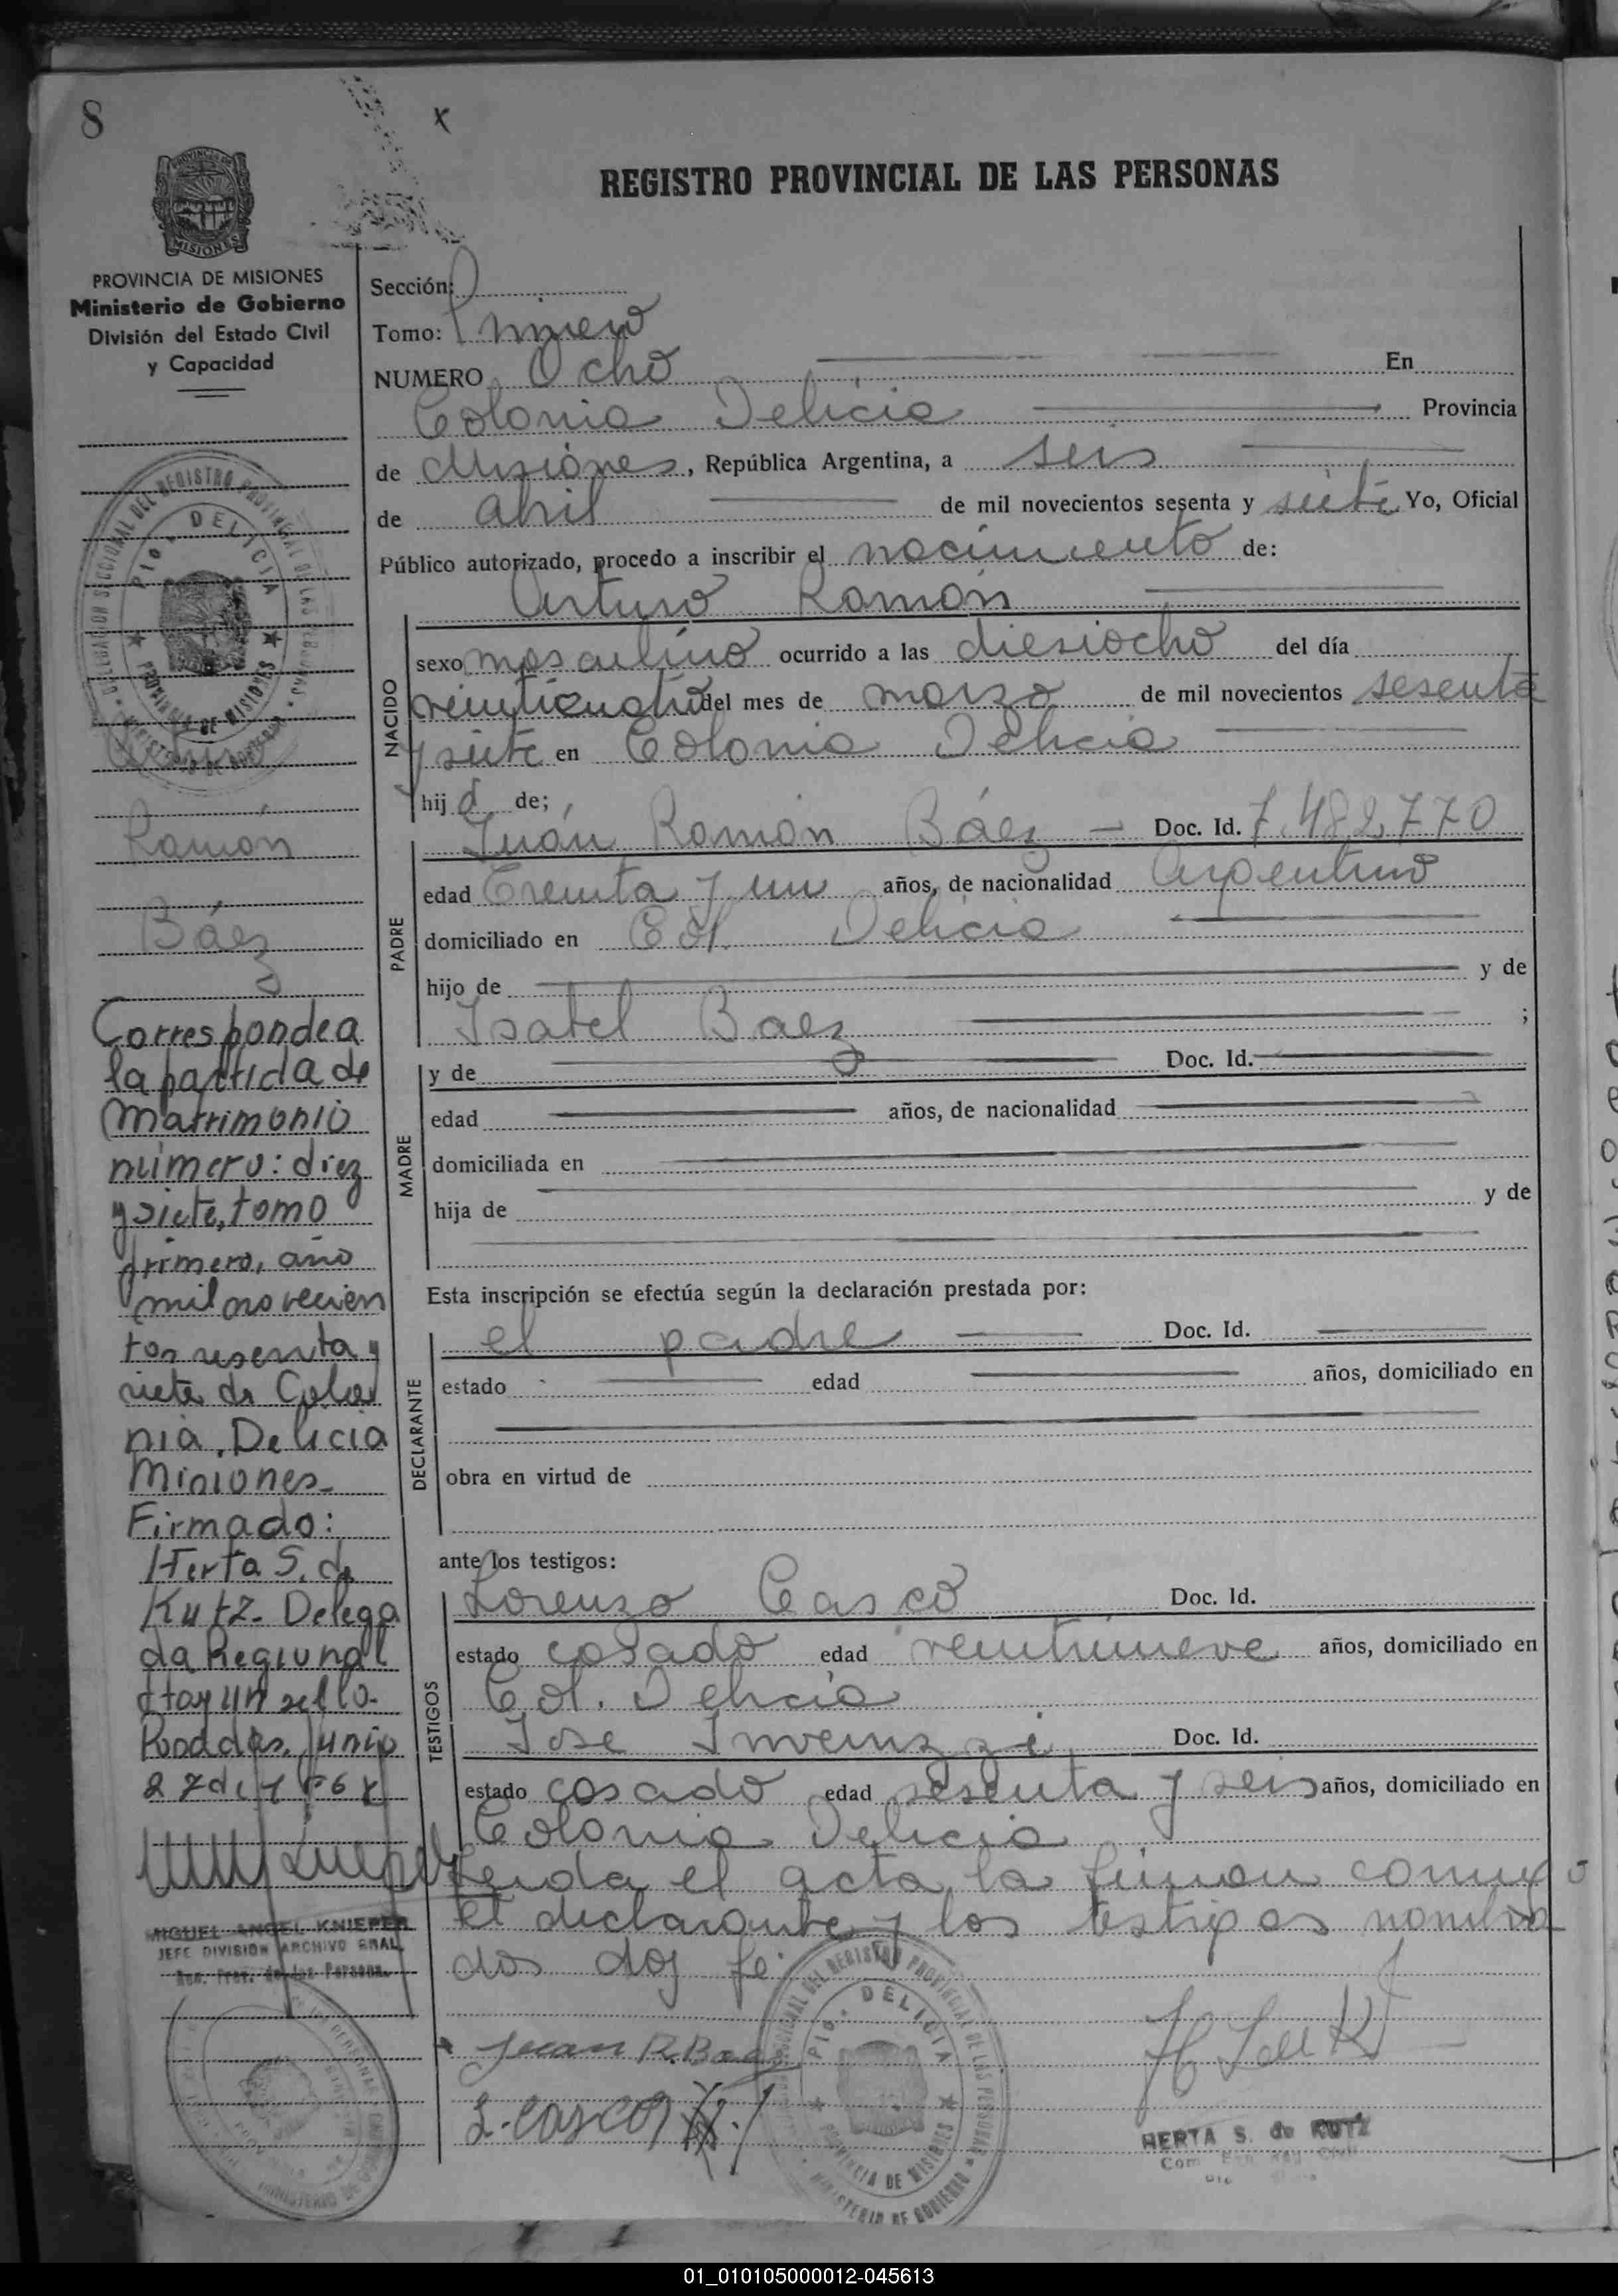 8
x
REGISTRO PROVINCIAL DE LAS PERSONAS
PROVINCIA DE MISIONES
Ministerio de Gobierno
División del Estado Civil
y Capacidad
Sección:
Tomo: Primero
NUMERO Ocho En
Colonia Delicia Provincia
de Misiones, República Argentina, a seis
de abril de mil novecientos sesenta y siete Yo, Oficial
Público autorizado, procedo a inscribir el nacimiento de:
Arturo Ramón
NACIDO
sexo masculino ocurrido a las diesiocho del día
veinticuatro del mes de marzo de mil novecientos sesenta
y siete en Colonia Delicia
hijo de;
PADRE
Juán Ramón Báez Doc. Id. 7.482.770
edad Treinta y un años, de nacionalidad Argentino
domiciliado en Col. Delicia
hijo de y de
Isabel Baez ;
MADRE
y de Doc. Id.
edad años, de nacionalidad
domiciliada en
hija de y de
Esta inscripción se efectúa según la declaración prestada por:
DECLARANTE
el padre Doc. Id.
estado edad años, domiciliado en
obra en virtud de
ante los testigos:
TESTIGOS
Lorenzo Casco Doc. Id.
estado casado edad veintinueve años, domiciliado en
Col. Delicia
Jose Invernizzi Doc. Id.
estado casado edad sesenta y seis años, domiciliado en
Colonia Delicia
Leida el acta la firman conmigo
el declarante y los testigos nombra
dos doy fe.
Juan R. Baez
L. Casco
HERTA S. de KUTZ
DELEGACION SECCIONAL DEL REGISTRO PROVINCIAL DE LAS PERSONAS
Pto. DELICIA
PROVINCIA DE MISIONES
MINISTERIO DE GOBIERNO
Arturo
Ramón
Báez
Corresponde a
la partida de
Matrimonio
número: diez
y siete, tomo
primero, año
mil novecien
tos sesenta y
siete de Colo
nia, Delicia
Misiones-
Firmado:
Herta S. de
Kutz- Delega
da Regional
Hay un sello-
Posadas, Junio
27 de
MIGUEL ANGEL KNIEPER
JEFE DIVISION ARCHIVO GRAL.
Reg. Prov. de las Personas
01_010105000012-045613